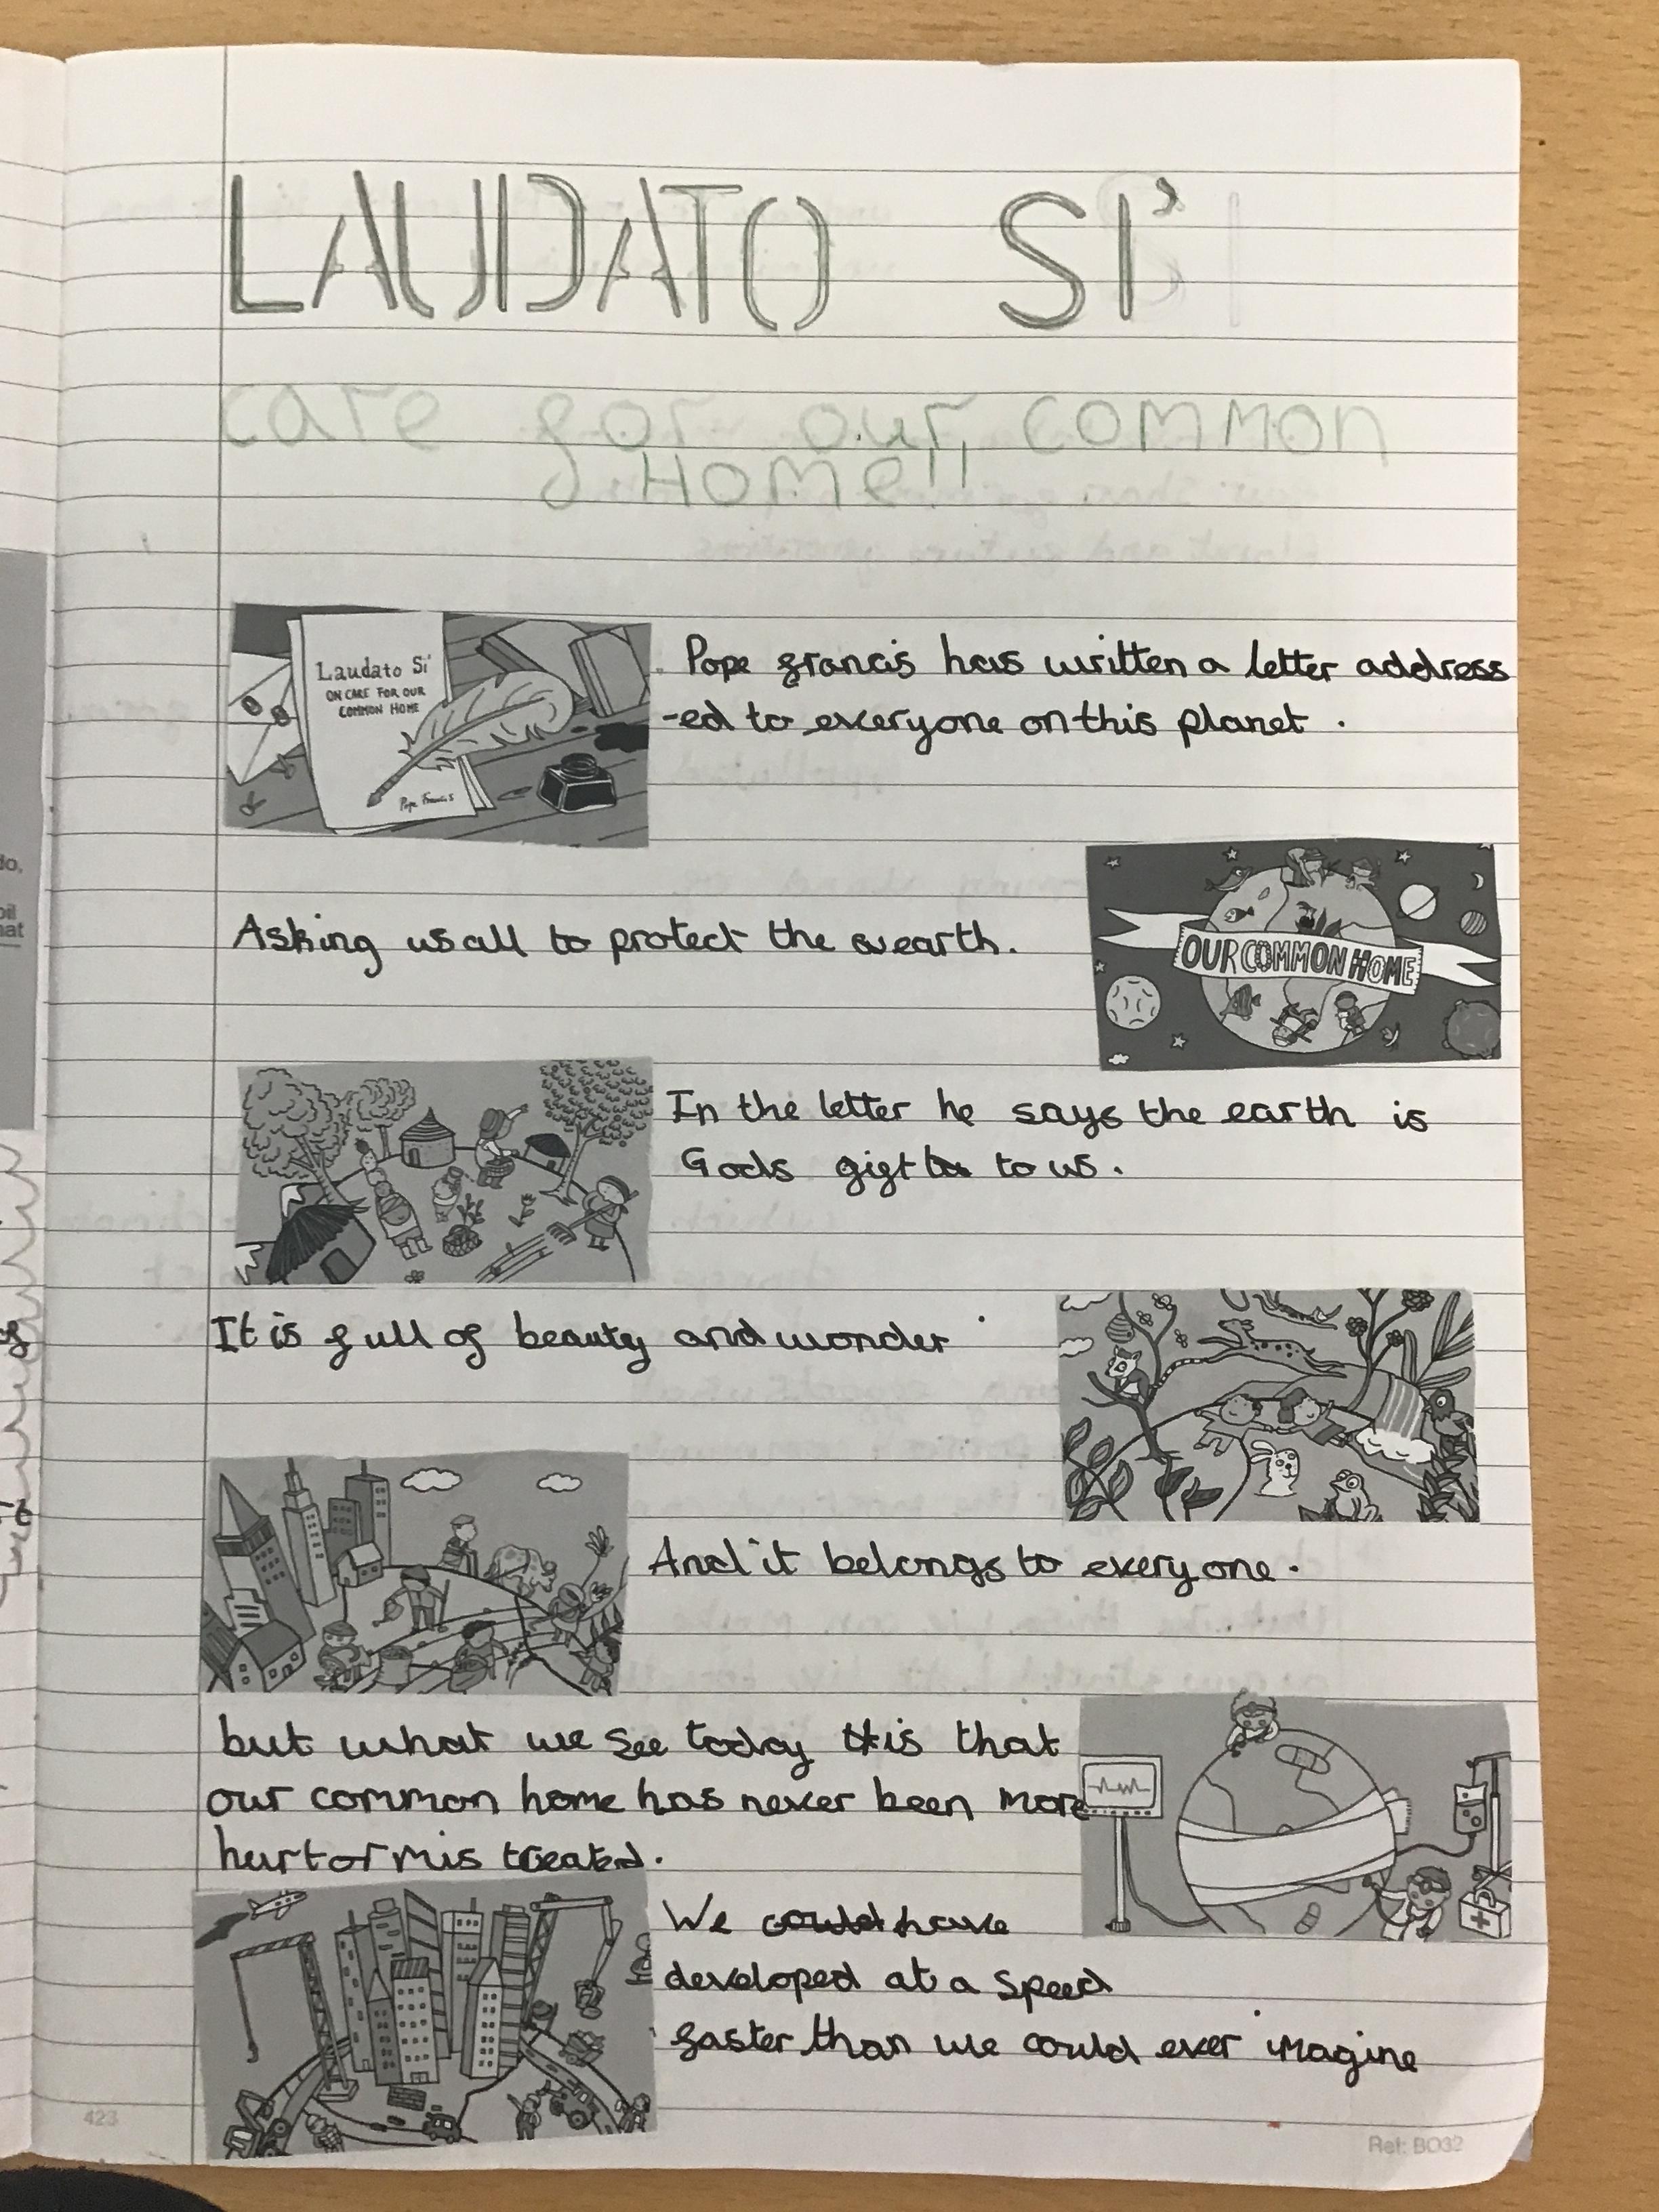 LAUDATO SI'
care for our common
Home!!
Laudato Si'
ON CARE FOR OUR
COMMON HOME
Pope Francis
Pope francis has written a letter address
-ed to everyone on this planet.
Asking us all to protect the earth.
OUR COMMON HOME
In the letter he says the earth is
Gods gift to us.
It is full of beauty and wonder
And it belongs to everyone.
but what we see today is that
our common home has never been more
hurt or mis treated.
We have
developed at a speed
faster than we could ever imagine
423
Ref: BO32